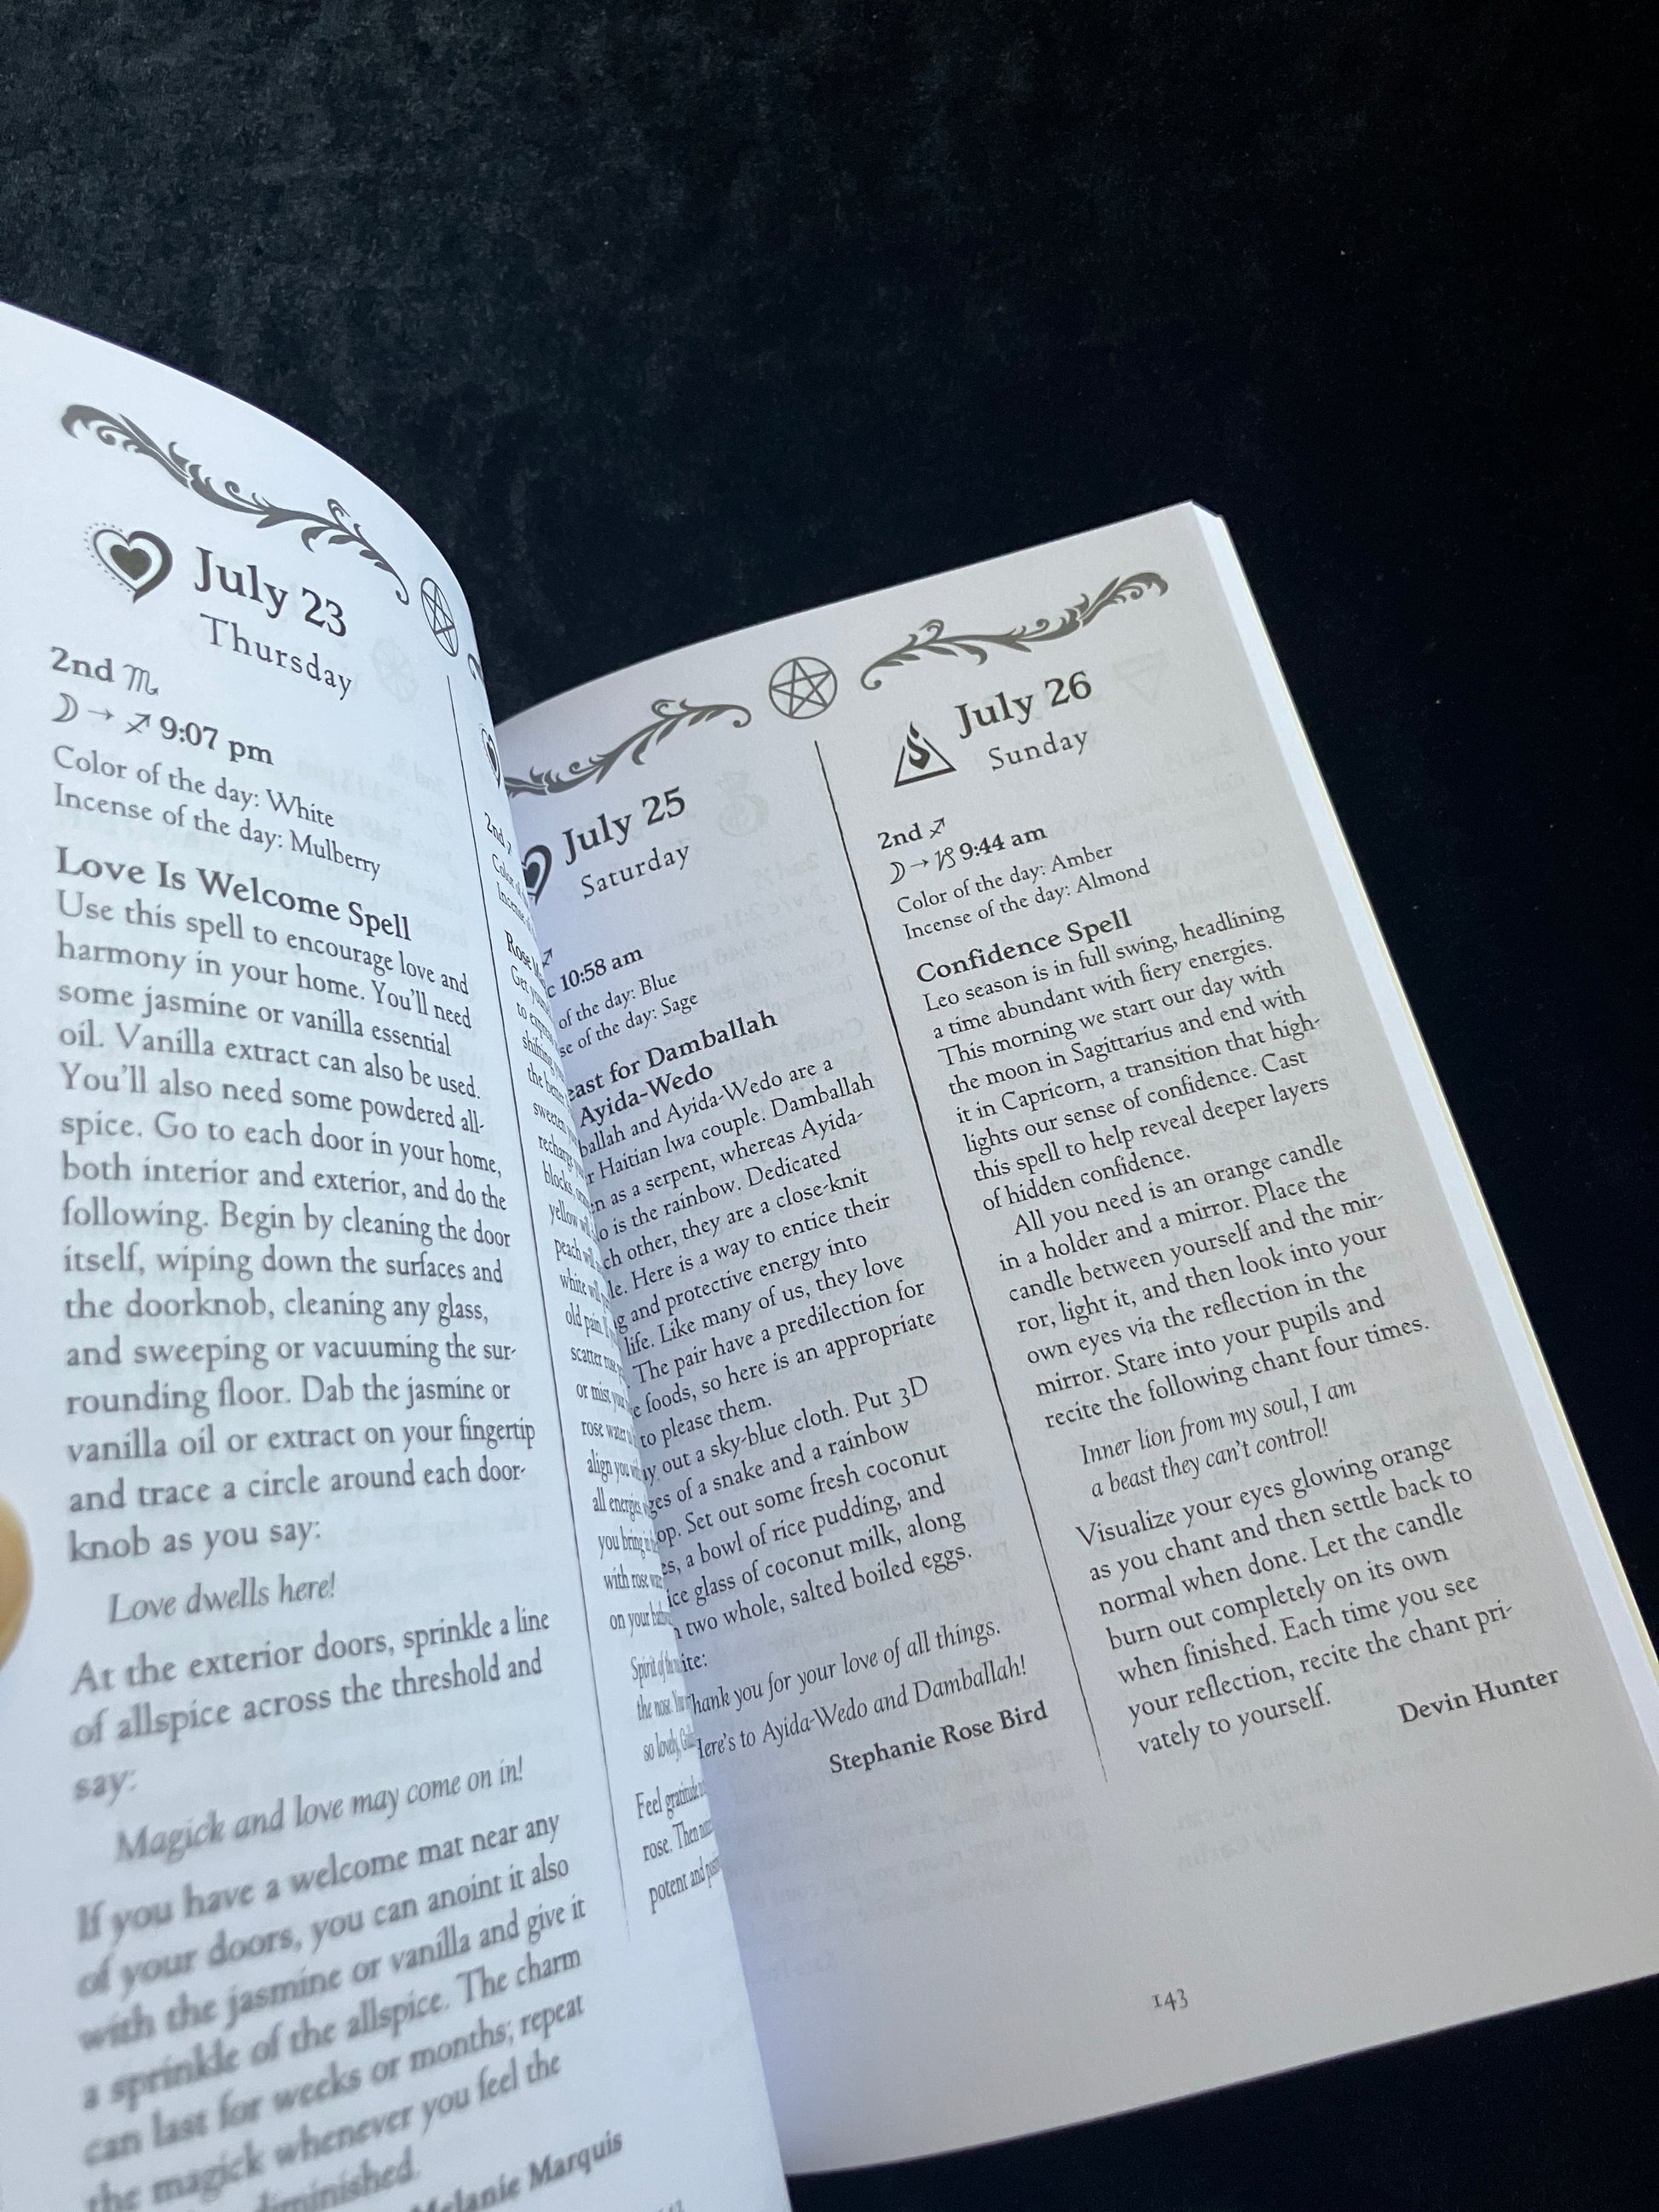 July 23
Thursday
2nd ♏
☽ → ♐ 9:07 pm
Color of the day: White
Incense of the day: Mulberry
Love Is Welcome Spell
Use this spell to encourage love and
harmony in your home. You'll need
some jasmine or vanilla essential
oil. Vanilla extract can also be used.
You'll also need some powdered all-
spice. Go to each door in your home,
both interior and exterior, and do the
following. Begin by cleaning the door
itself, wiping down the surfaces and
the doorknob, cleaning any glass,
and sweeping or vacuuming the sur-
rounding floor. Dab the jasmine or
vanilla oil or extract on your fingertip
and trace a circle around each door-
knob as you say:
Love dwells here!
At the exterior doors, sprinkle a line
of allspice across the threshold and
say:
Magick and love may come on in!
If you have a welcome mat near any
of your doors, you can anoint it also
with the jasmine or vanilla and give it
a sprinkle of the allspice. The charm
can last for weeks or months; repeat
the magick whenever you feel the
diminished.
Melanie Marquis
2nd
Color of
Rose
Get
to
the
blocks,
yellow
peach
white
old pain.
scatter rose
or mist your
rose water
align you
all energies
you bring
with rose
on your
Spirit of
the nose. You
so lovely,
Feel gratitude
rose. Then
potent and
July 25
Saturday
10:58 am
of the day: Blue
of the day: Sage
for Damballah
Ayida-Wedo
and Ayida-Wedo are a
Haitian lwa couple. Damballah
as a serpent, whereas Ayida-
is the rainbow. Dedicated
other, they are a close-knit
Here is a way to entice their
and protective energy into
life. Like many of us, they love
The pair have a predilection for
foods, so here is an appropriate
to please them.
out a sky-blue cloth. Put 3D
of a snake and a rainbow
Set out some fresh coconut
a bowl of rice pudding, and
glass of coconut milk, along
two whole, salted boiled eggs.
you for your love of all things.
to Ayida-Wedo and Damballah!
Stephanie Rose Bird
July 26
Sunday
2nd ♐
☽ → ♑ 9:44 am
Color of the day: Amber
Incense of the day: Almond
Confidence Spell
Leo season is in full swing, headlining
a time abundant with fiery energies.
This morning we start our day with
the moon in Sagittarius and end with
it in Capricorn, a transition that high-
lights our sense of confidence. Cast
this spell to help reveal deeper layers
of hidden confidence.
All you need is an orange candle
in a holder and a mirror. Place the
candle between yourself and the mir-
ror, light it, and then look into your
own eyes via the reflection in the
mirror. Stare into your pupils and
recite the following chant four times.
Inner lion from my soul, I am
a beast they can't control!
Visualize your eyes glowing orange
as you chant and then settle back to
normal when done. Let the candle
burn out completely on its own
when finished. Each time you see
your reflection, recite the chant pri-
vately to yourself.
Devin Hunter
143